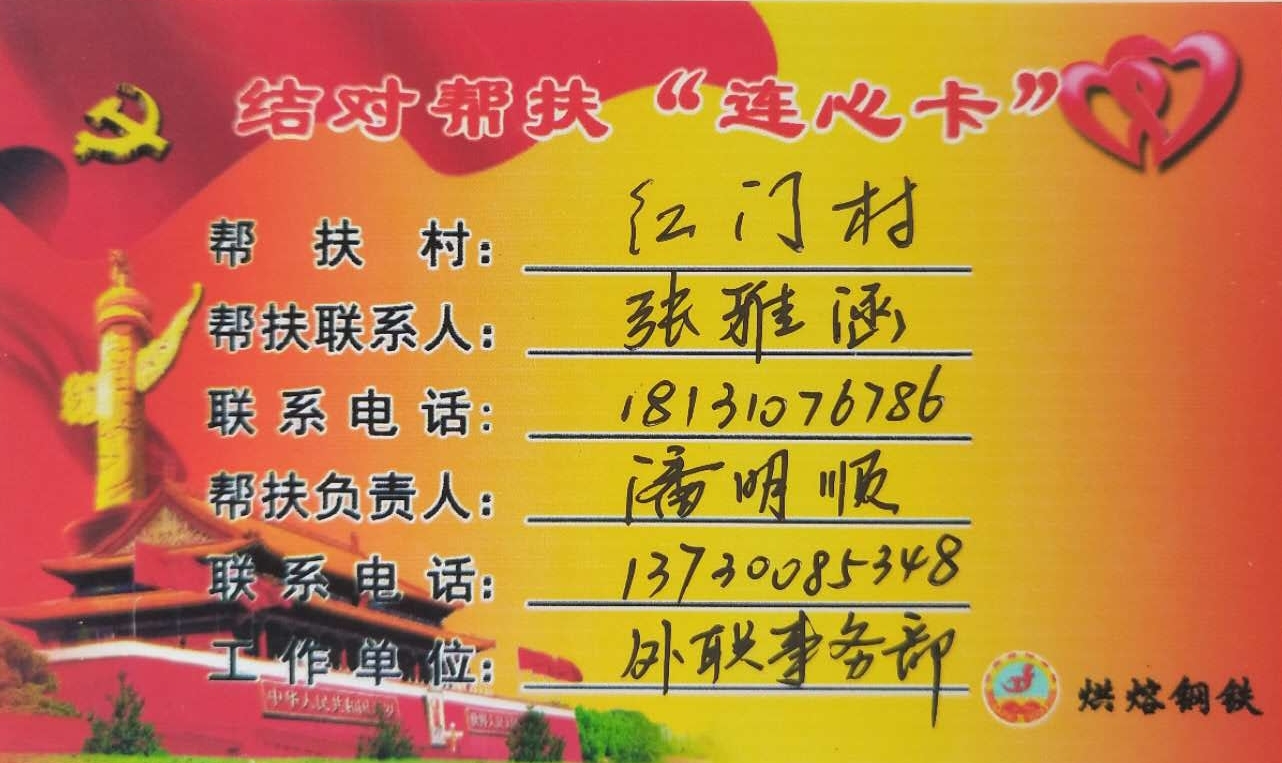 结对帮扶“连心卡”
帮扶村：红门村
帮扶联系人：张雅涵
联系电话：18131076786
帮扶负责人：潘明顺
联系电话：13730085348
工作单位：外联事务部
烘熔钢铁
中华人民共和国万岁